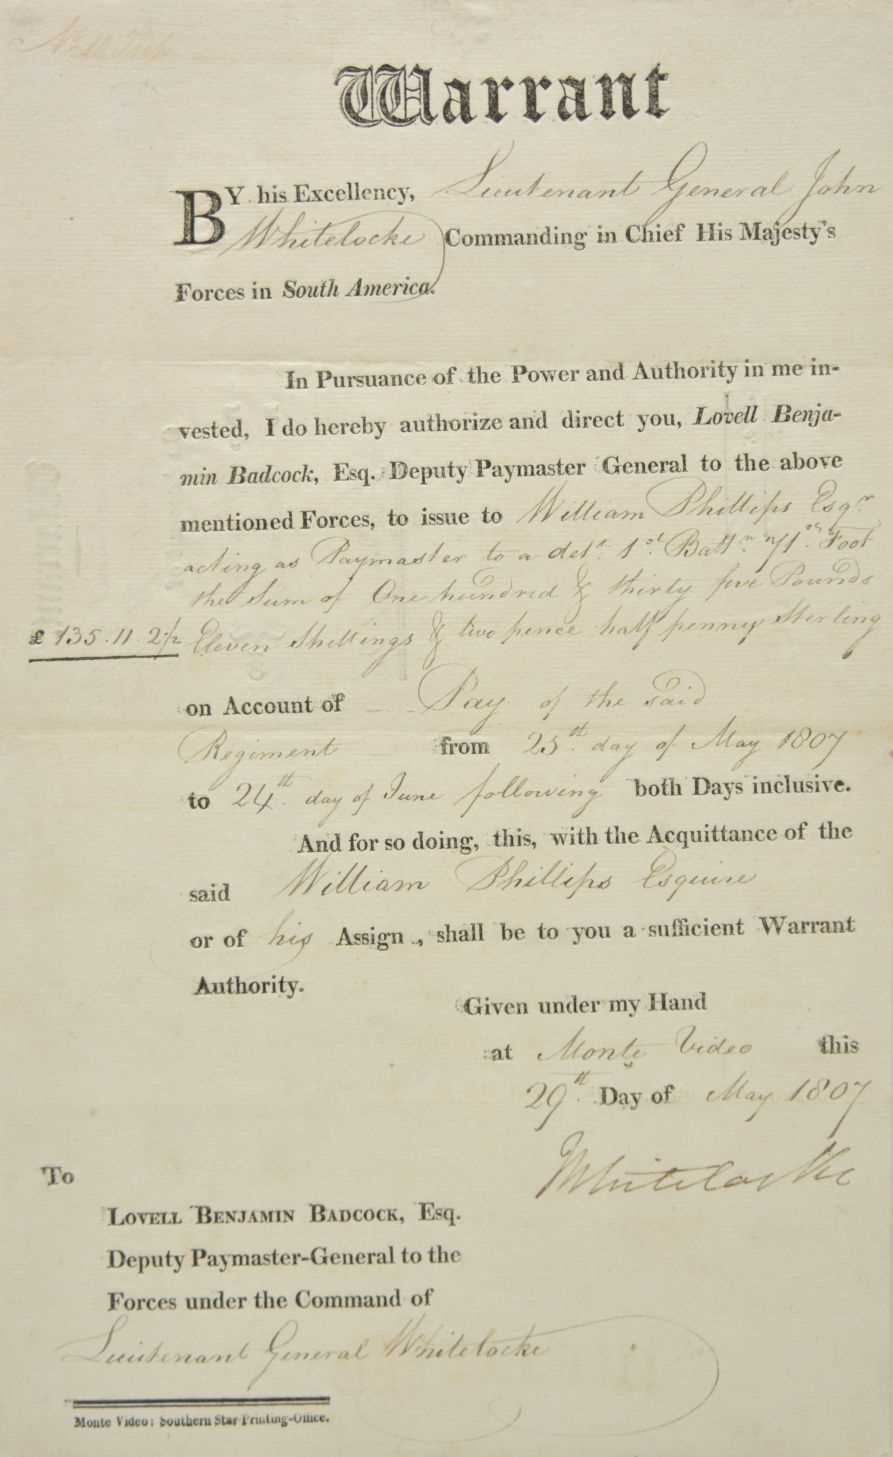 Warrant
BY his Excellency, Lieutenant General John
Whitelocke Commanding in Chief His Majesty's
Forces in South America.
In Pursuance of the Power and Authority in me in-
vested, I do hereby authorize and direct you, Lovell Benja-
min Badcock, Esq. Deputy Paymaster General to the above
mentioned Forces, to issue to William Phillips Esqr
acting as Paymaster to a dett. 1st. Battn. 71st. Foot
the Sum of One hundred & thirty five Pounds
£ 135.11 2½ Eleven Shillings & two pence half penny Sterling
on Account of Pay of the said
Regiment from 25th. day of May 1807
to 24th. day of June following both Days inclusive.
And for so doing, this, with the Acquittance of the
said William Phillips Esquire
or of his Assign , shall be to you a sufficient Warrant
Authority.
Given under my Hand
at Monte Video this
29th. Day of May 1807
J Whitelocke
To
LOVELL BENJAMIN BADCOCK, Esq.
Deputy Paymaster-General to the
Forces under the Command of
Lieutenant General Whitelocke
Monte Video: Southern Star Printing-Office.